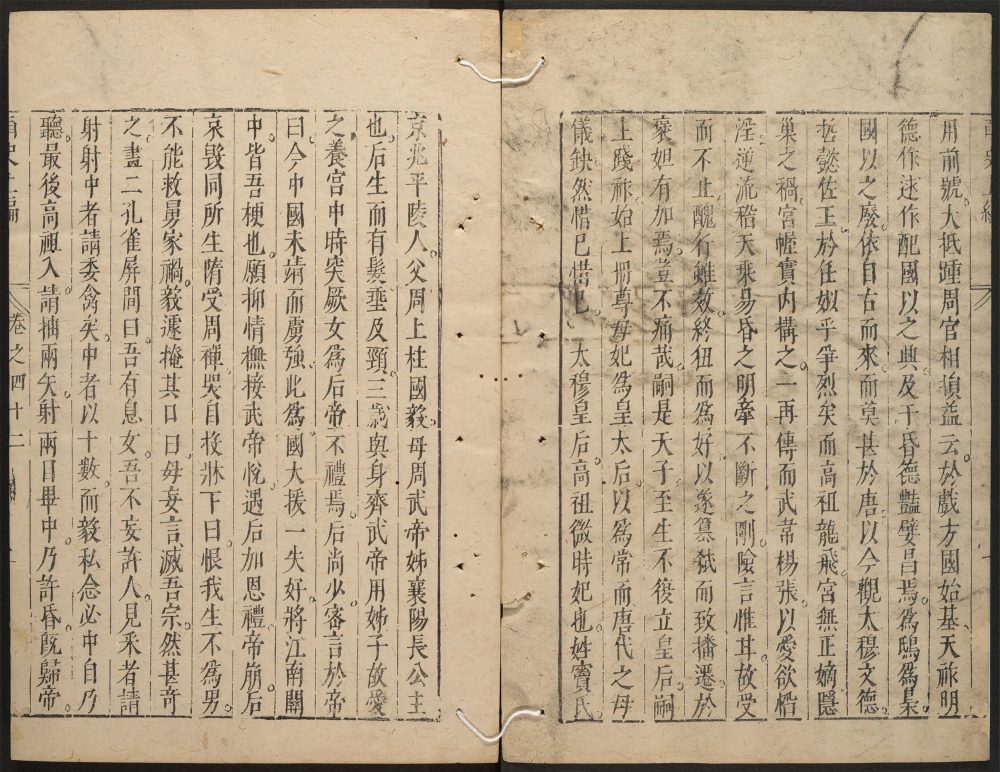 用前號大抵踵周官相損益云於戲方國始基天祚明
德作逑作配國以之典及于昏德豔嬖昌焉爲鴟爲梟
國以之廢依自古而來而莫甚於唐以今觀太穆文德
哲懿佐王於任姒乎爭烈矣而高祖龍飛宮無正嫡隱
巢之禍宮幃實內構之一再傳而武韋楊張以愛欲惛
淫逆流稽天乘易昏之明牽不斷之剛陰言惟耳故受
而不止醜行雖效終狃而爲好以遂篡弒而致播遷於
褒妲有加焉豈不痛哉嗣是天子至生不復立皇后嗣
主踐祚始上冊尊母妃爲皇太后以爲常而唐代之母
儀缺然惜已惜已 太穆皇后高祖微時妃也姓竇氏
京兆平陵人父周上柱國毅母周武帝姊襄陽長公主
也后生而有髮垂及頸三歲與身齊武帝用姊子故愛
之養宮中時突厥女爲后帝不禮焉后尚少審言於帝
曰今中國未靖而虜強此爲國大援一失好將江南關
中皆吾梗也願抑情撫接武帝悅遇后加恩禮帝崩后
哀毀同所生隋受周禪哭自投牀下曰恨我生不爲男
不能救舅家禍毅遽掩其口曰毋妄言滅吾宗然甚奇
之畫二孔雀屏間曰吾有息女吾不妄許人見釆者請
射射中者請委禽矣中者以十數而毅私念必中目乃
聽最後高祖入請抽兩矢射兩目畢中乃許昏旣歸帝
卷之四十二